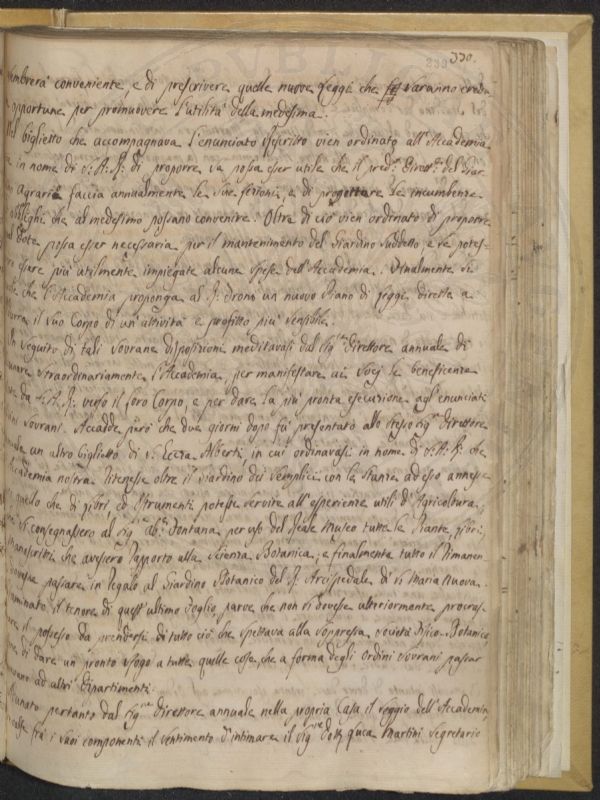 239 330.
sembrerà conveniente, e di prescrivere quelle nuove Leggi che saranno credu-
opportune per promuovere l'utilità della medesima.
biglietto che accompagnava l'enunciato rescritto vien ordinato all'Accademia
in nome di S. A. R. di proporre se possa esser utile che il pred.º Dirett.re del Giar-
agrario faccia annualmente le sue lezioni, e di progettare le incumbenze
obblighi che al medesimo possano convenire. Oltre di ciò vien ordinato di proporre
dote possa esser necessaria per il mantenimento del Giardino suddetto e se potes-
essere più utilmente impiegate alcune spese dell'Accademia. Finalmente si
che l'Accademia proponga al R. Trono un nuovo Piano di Leggi, diretto a
il suo Corpo di un'attività e profitto più sensibile.
In seguito di tali Sovrane disposizioni meditavasi dal Sig.re Direttore annuale di
straordinariamente l'Accademia, per manifestare ai Socj le beneficenze
da S. A. R. verso il loro Corpo, e per dare la più pronta esecuzione agl'enunciati
Sovrani. Accadde però che due giorni dopo fu presentato allo stesso Sig.re Direttore
un altro biglietto di S. Ecc.za Alberti, in cui ordinavasi in nome di S. A. R. che
Accademia nostra ritenesse oltre il Giardino dei Semplici con le Stanze ad esso annesse
quello che di Libri, ed Strumenti potesse servire all'esperienze utili d'Agricoltura,
si consegnassero al Sig.re Ab.e Fontana per uso del Reale Museo tutte le Piante, Libri,
Manoscritti che avessero rapporto alla Scienza Botanica, e finalmente tutto il rimanen-
dovesse passare in regalo al Giardino Botanico del R. Arcispedale di S. Maria Nuova.
Esaminato il tenore di quest'ultimo Foglio, parve che non si dovesse ulteriormente procras-
il possesso da prendersi di tutto ciò che spettava alla soppressa Società Fisico-Botanica,
di dare un pronto sfogo a tutte quelle cose, che a forma degli Ordini Sovrani passar
ad altri dipartimenti.
Adunato pertanto dal Sig.re Direttore annuale nella propria Casa il seggio dell'Accademia,
fra i suoi componenti il sentimento d'intimare il Sig.re Dott. Luca Martini Segretario